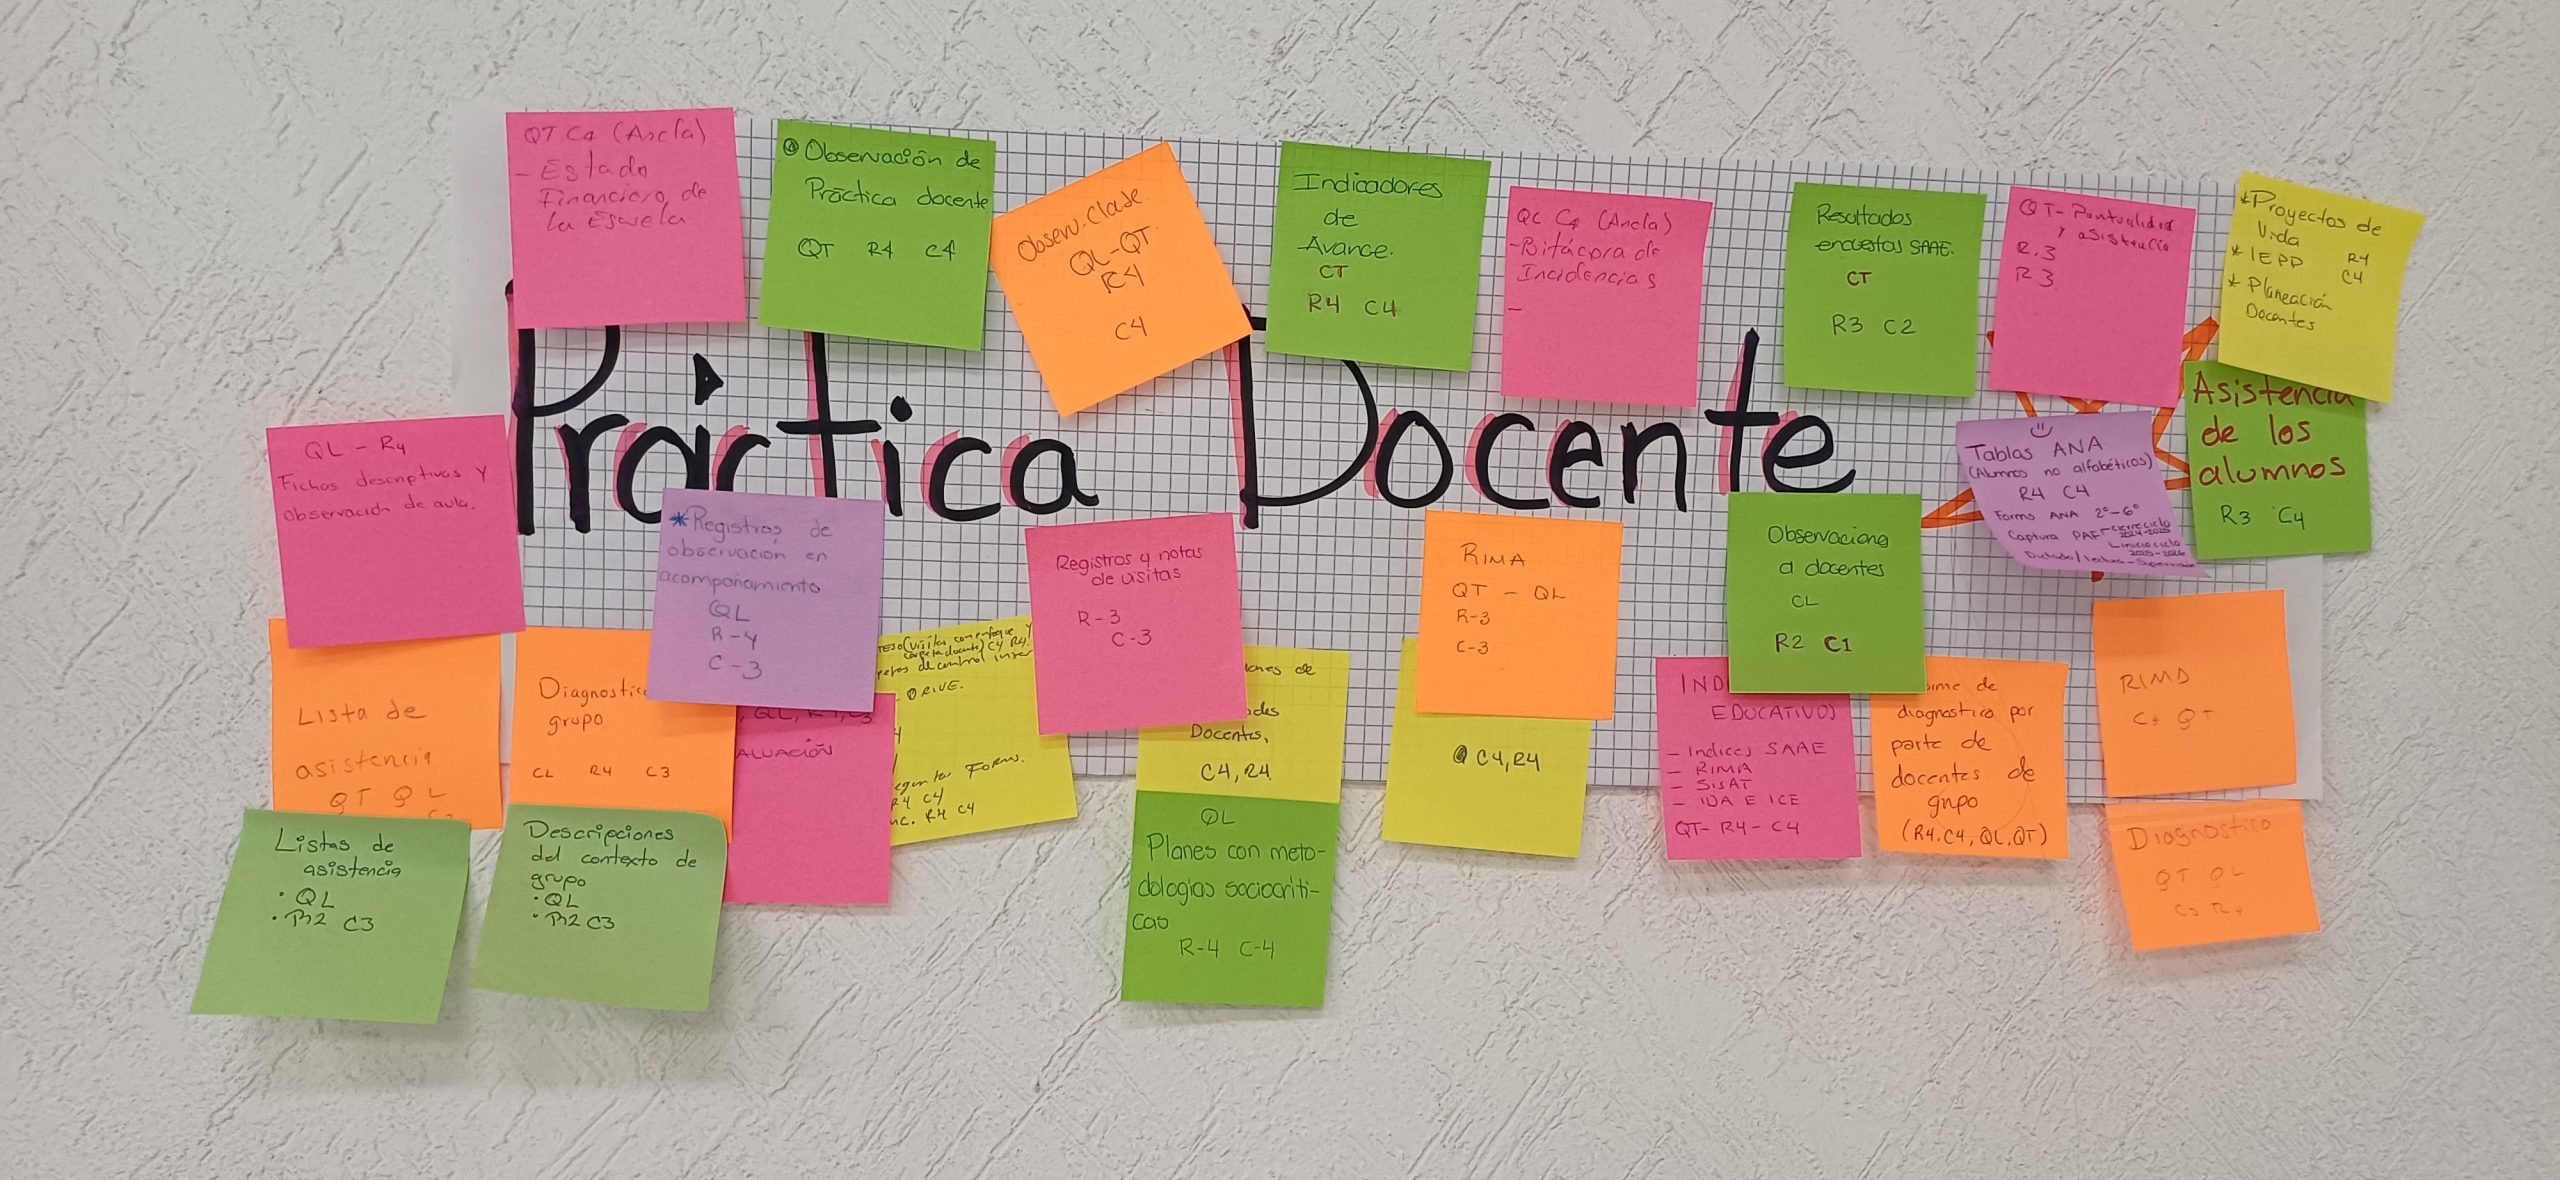 QT C4 (Ancla)
- Estado
Financiero de
la Escuela
Observación de
Práctica docente
QT R4 C4
Observ. Clase
QL-QT
R4
C4
Indicadores
de
Avance.
CT
R4 C4
QL C4 (Ancla)
-Bitácora de
Incidencias
-
Resultados
encuestas SAAE.
CT
R3 C2
QT- Puntualidad
y asistencia
R.3
R3
*Proyectos de
Vida R4
* IEPP C4
* Planeación
Docentes
Práctica Docente
Asistencia
de los
alumnos
R3 C4
Tablas ANA
(Alumnos no alfabéticos)
R4 C4
Forms ANA 2°-6°
Captura PAF cierre ciclo
2024-2025
inicio ciclo
2025-2026
QL - R4
Fichas descriptivas y
observación de aula.
*Registros de
observación en
acompañamiento
QL
R-4
C-3
Registros y notas
de visitas
R-3
C-3
RIMA
QT - QL
R-3
C-3
Observaciona
a docentes
CL
R2 C1
Lista de
asistencia
QT QL
Diagnostico
grupo
CL R4 C3
ALUACIÓN
(Visitas con enfoque y
carpeta docente) C4 R4
de control inter
DRIVE.
Forms.
R4 C4
R4 C4
ones de
ades
Docentes,
C4, R4
C4, R4
IND
EDUCATIVO)
- Indices SAAE
- RIMA
- SISAT
- IDA E ICE
QT- R4- C4
me de
diagnostico por
parte de
docentes de
grupo
(R4.C4, QL, QT)
RIMD
QT
Diagnostico
QT QL
Listas de
asistencia
· QL
· R2 C3
Descripciones
del contexto de
grupo
· QL
· R2 C3
QL
Planes con meto-
dologias sociocriti-
cas
R-4 C-4